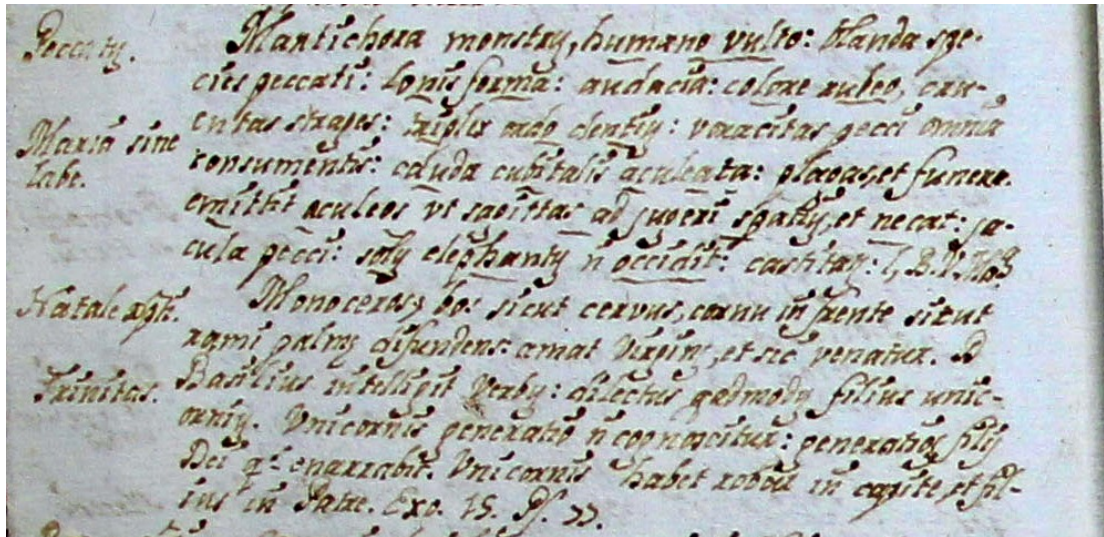 Peccatū.
Mantichora monstrū, humano vulto: blanda spe-
cies peccati: bonis forma: audacia: colore rubeo, cru-
entas strages: triplex ordo dentiū: voracitas pecci omnia
Maria sine
labe.
consumentis: cauda cubitalis aculeata: plagas, et funere.
emittit aculeos vt sagittas ad jugeri spatiū, et necat: ja-
cula pecci: solū elephantū ñ occidit: castitatē: l, B.V.
Natale
Monoceros, bos sicut cervus, cornu in frente sicut
rami palmę difundens: amat Virginē, et sic venatur. D
Trinitas.
Basilius intelligit Verbū: dilectus qædmodū filius unic-
orniū. Vnicornis generatio ñ cognoscitur: generationē filij
Dei qs enarrabit. Vnicornis habet robur in capite, et fil-
ius in Patre. Exo. 15. Ps. 77.